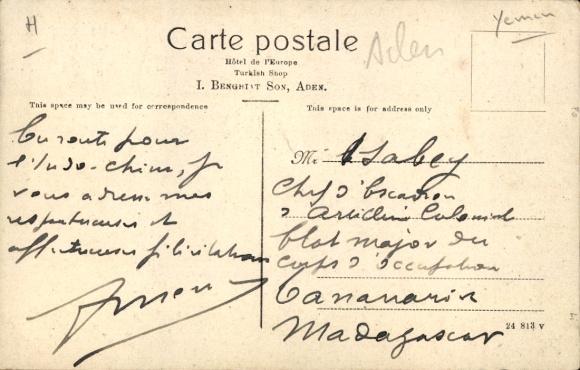 H
Yemen
Aden
Carte postale
Hôtel de l'Europe
Turkish Shop
I. Benghiat Son, Aden.
This space may be used for correspondence
This space is for address only
En route pour
l'Indo-Chine, je
vous adresse mes
respectueuses et
affectueuses félicitations
M
Chef d'Escadron
d'Artillerie Coloniale
Etat major du
Corps d'occupation
Tananarive
Madagascar
24 813 V